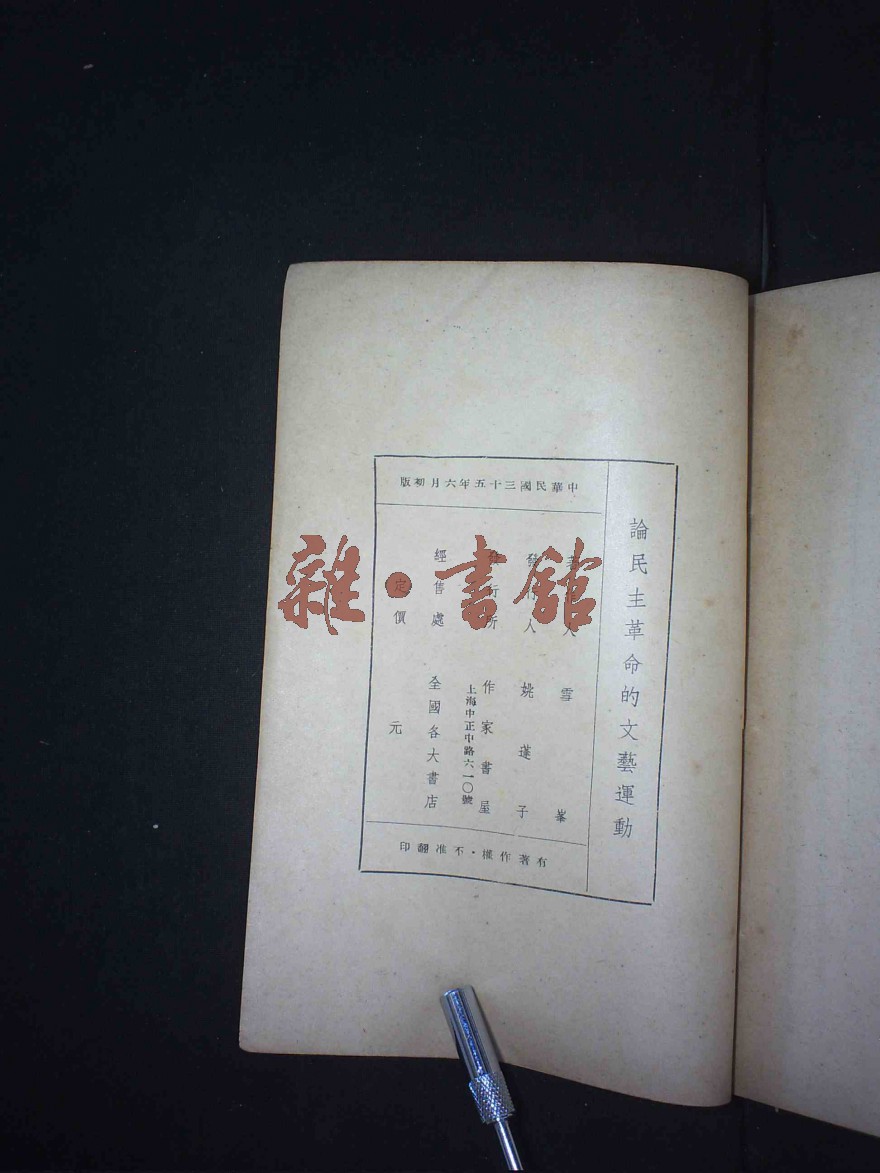 論民主革命的文藝運動
中華民國三十五年六月初版
著 人 雪峯
發行人 姚蓬子
發行所 作家書屋
上海中正中路六一〇號
經售處 全國各大書店
定價 元
有著作權・不准翻印
雜・書館